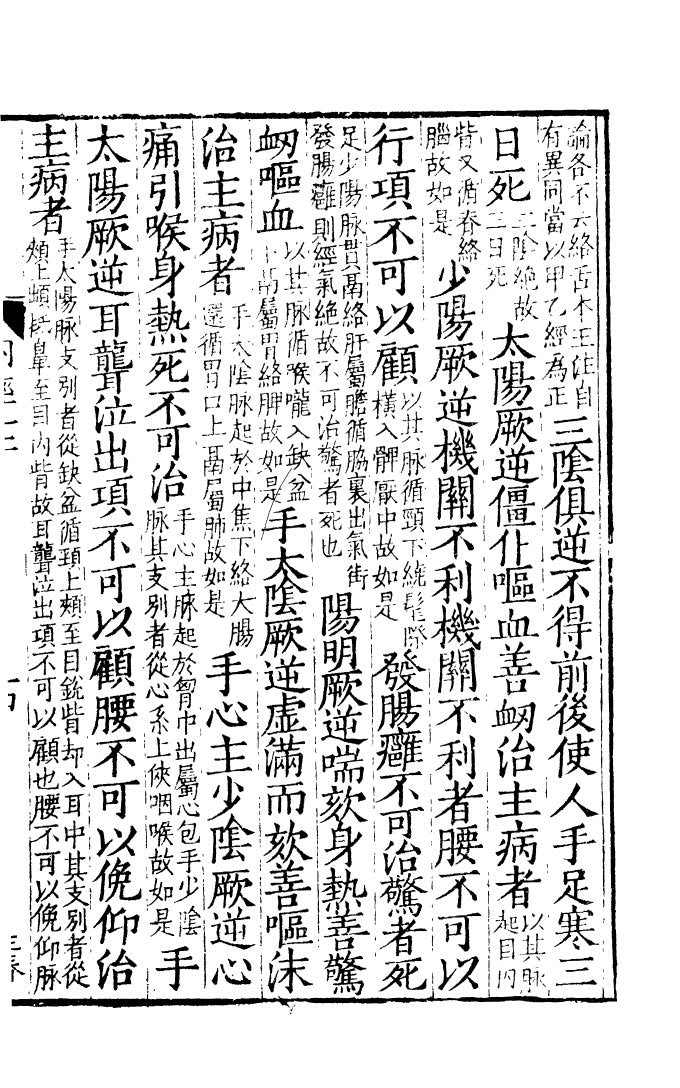 論各不云絡舌本王注自有異同當以甲乙經爲正三陰俱逆不得前後使人手足寒三
日死三陰絶故三日死太陽厥逆僵仆嘔血善衂治主病者以其脉起目内
眥又循脊絡腦故如是少陽厥逆機關不利機關不利者腰不可以
行項不可以顧以其脉循頸下繞髦際橫入髀厭中故如是發腸癰不可治驚者死
足少陽脉貫鬲絡肝屬膽循脇裏出氣街發腸癰則經氣絶故不可治驚者死也陽明厥逆喘欬身熱善驚
衂嘔血以其脉循喉嚨入缺盆下鬲屬胃絡脾故如是手太陰厥逆虛滿而欬善嘔沫
治主病者手太陰脉起於中焦下絡大腸還循胃口上鬲屬肺故如是手心主少陰厥逆心
痛引喉身熱死不可治手心主脉起於胷中出屬心包手少陰脉其支別者從心系上俠咽喉故如是手
太陽厥逆耳聾泣出項不可以顧腰不可以俛仰治
主病者手太陽脉支別者從缺盆循頸上頰至目銳眥却入耳中其支別者從頰上䪼抵鼻至目内眥故耳聾泣出項不可以顧也腰不可以俛仰脉